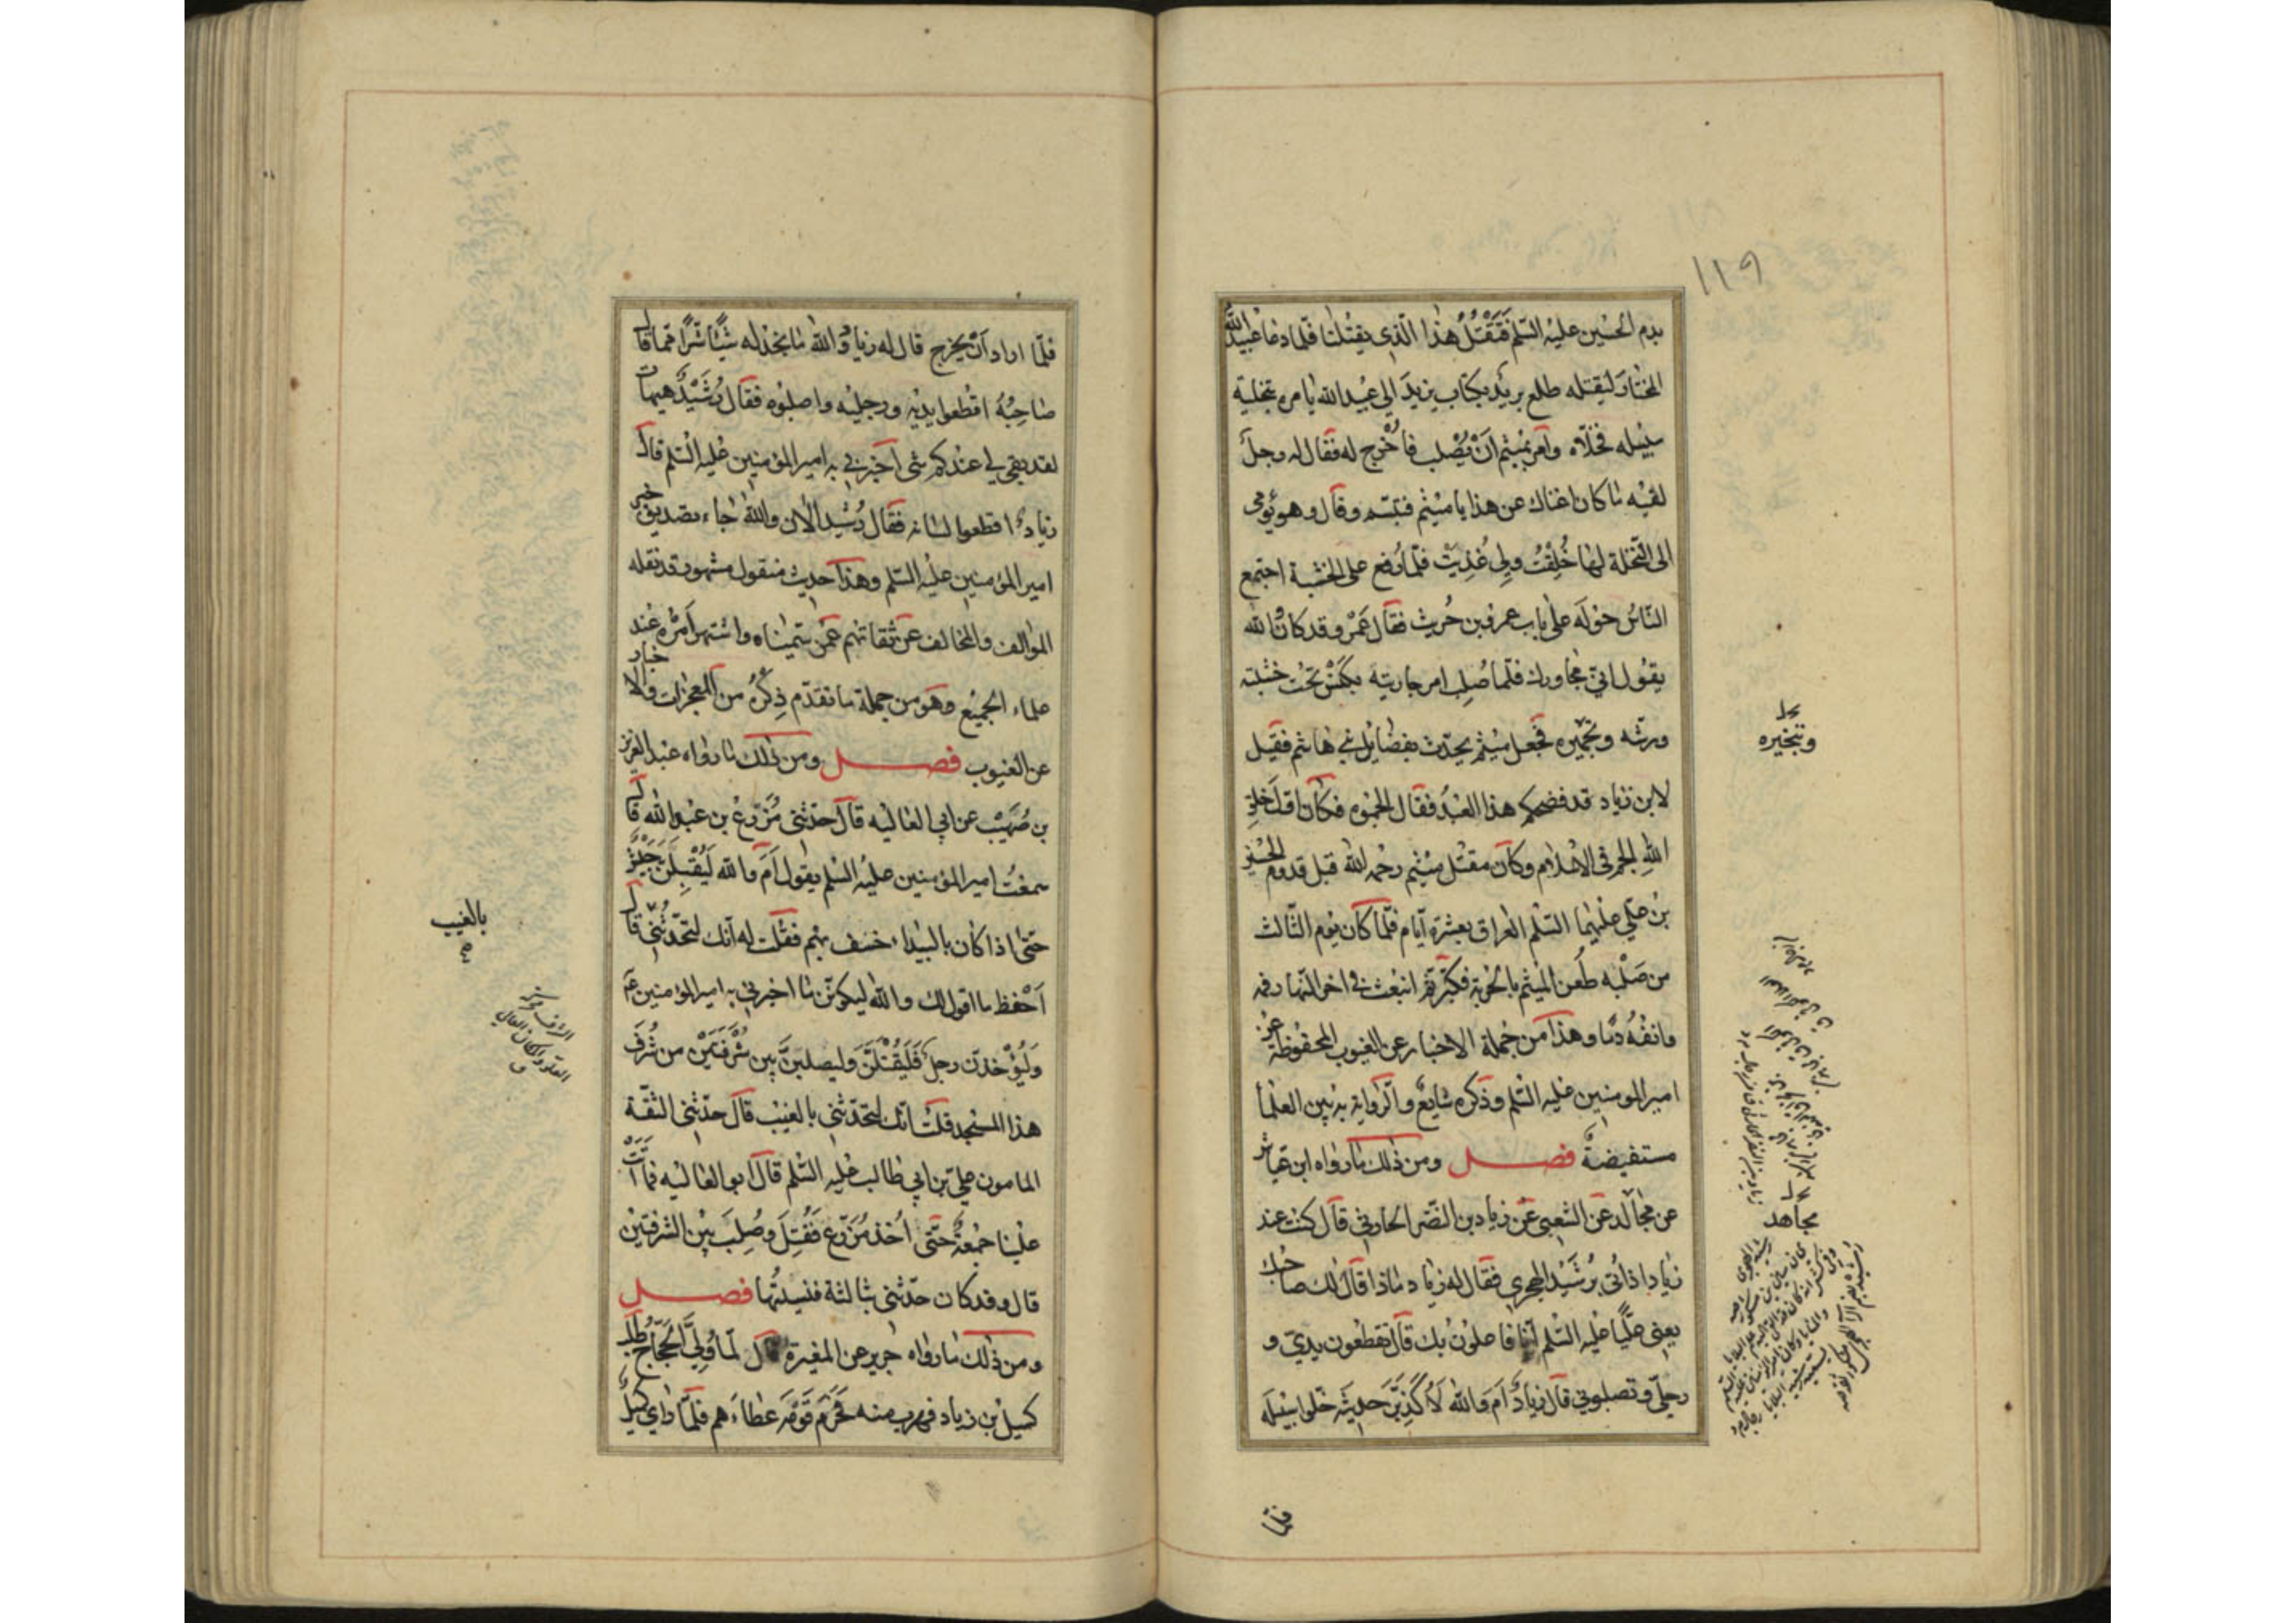 ١١٩
بدم الحسين عليه السّلم فَتَقْتُلُ هذا الّذى يقتلنا فلمّا دعا عبيد الله
المختار ليقتله طلع بريد بكتاب يزيدَ الى عبيد الله يامره بتخلية
سبيله فخلّاه وامر بميثم انْ يُصْلب فاُخْرج له فقال له رجلٌ
لقيه ما كان اغناك عن هذا يا ميثم فتبسّم وقال وهو يؤمى
الى النّخلة لها خُلِقْتُ ولِى غُذِيَتْ فلمّا رُفع على الخشبة اجتمع
النّاسُ حَوْلَه على باب عمرو بن حُريث فقال عَمْرو قد كان والله
يقول انّى مجاورك فلمّا صُلِب امر جاريته بكَنْس تحْت خشبته
ورشّه وتجميره فجعل ميثم يحدّث بفضايل بنى هاشم فقيل
لابن زياد قد فضحكم هذا العبدُ فقال الجموه فكان اوّل خلق
الله الجم فى الاسلام وكان مقتل ميثم رحمه الله قبل قدوم الحسين
بن علي عليهما السّلم العراق بعشرة ايّام فلمّا كان يوم الثّالث
من صَلْبه طُعن الميثم بالحربة فكبّر ثم انبعث فى اخر النّهار فمه
وانفُهُ دمًا وهذا من جملة الاخبار عن الغيوب المحفوظة عن
امير المومنين عليه السّلم وذكره شايعٌ والرواية به بين العلماء
مستفيضةٌ فصل ومن ذلك ما رواه ابن عيّاش
عن مجالد عن الشعبى عن زياد بن النّضر الحارثى قال كنت عند
زياد اذ اُتى برُشَيد الهجرى فقال له زياد ماذا قال لك صاحبك
يعنى عليًّا عليه السّلم انّا فاعلون بك قال تقطعون يديّ و
رجليّ وتصلبونى قال زيادٌ اَمَ والله لَاُكَذِّبَنَّ حديثه خلّوا سبيله
وتبخيره
مجاهد
فلمّا
فلمّا اراد اَنْ يخرج قال له زياد والله ما نجد له شيئًا شرًّا ممّا قال
صاحِبُهُ اقطعوا يديه ورجليه واصلبوه فقال رُشَيْدٌ هيهات
لقد بقى لى عندكم شى اخبرنى به امير المؤمنين عليه السّلم قال
زيادٌ اقطعوا لسانه فقال رُشيد الآن والله جاء تصديق خبر
امير المؤمنين عليه السّلم وهذا حديث منقول مشهور قد نقله
الموالف والمخالف عن ثقاتهم عمّن سمّيناه واشتهر اَمْرُه عند
علماء الجميع وهو من جملة ما تقدّم ذِكْرُه من المعجزات والاخبار
عن الغيوب فصل ومن ذلك ما رواه عبد العزيز
بن صُهَيْب عن ابى العاليه قال حدّثنى مُزَرّع بن عبد الله قال
سمعْتُ امير المؤمنين عليه السّلم يقول اَمَ والله لَيُقْبِلَنَّ جَيْشٌ
حتى اذا كان بالبيداء خسف بهم فقلت له انّك لتحدّثُنى قال
اَحْفظ ما اقول لك والله ليكوننّ ما اخبرنى به امير المؤمنين عم
وَلَيُؤْخذنّ رجل فَلَيُقْتَلَنَّ وليصلبنّ بين شُرْفَتَيْن من شُرَف
هذا المسجد قلت انّك لتحدّثنى بالغيب قال حدّثنى الثّقة
المامون علي بن ابى طالب عليه السّلم قال ابو العاليه فما اَتَتْ
علينا جمْعةٌ حتّى اُخذ مُزَرّع فَقُتِلَ وصُلِبَ بين الشرفتين
قال وقد كان حدّثنى بثالثة فنسيتُها فصل
ومن ذلك ما رواه جرير عن المغيرة قال لمّا وُلِّىَ الحَجّاجُ طلب
كميل بن زياد فهرب منه فحَرَمَ قَوْمَه عَطاءَهم فلمّا راى كميل
بالغيب